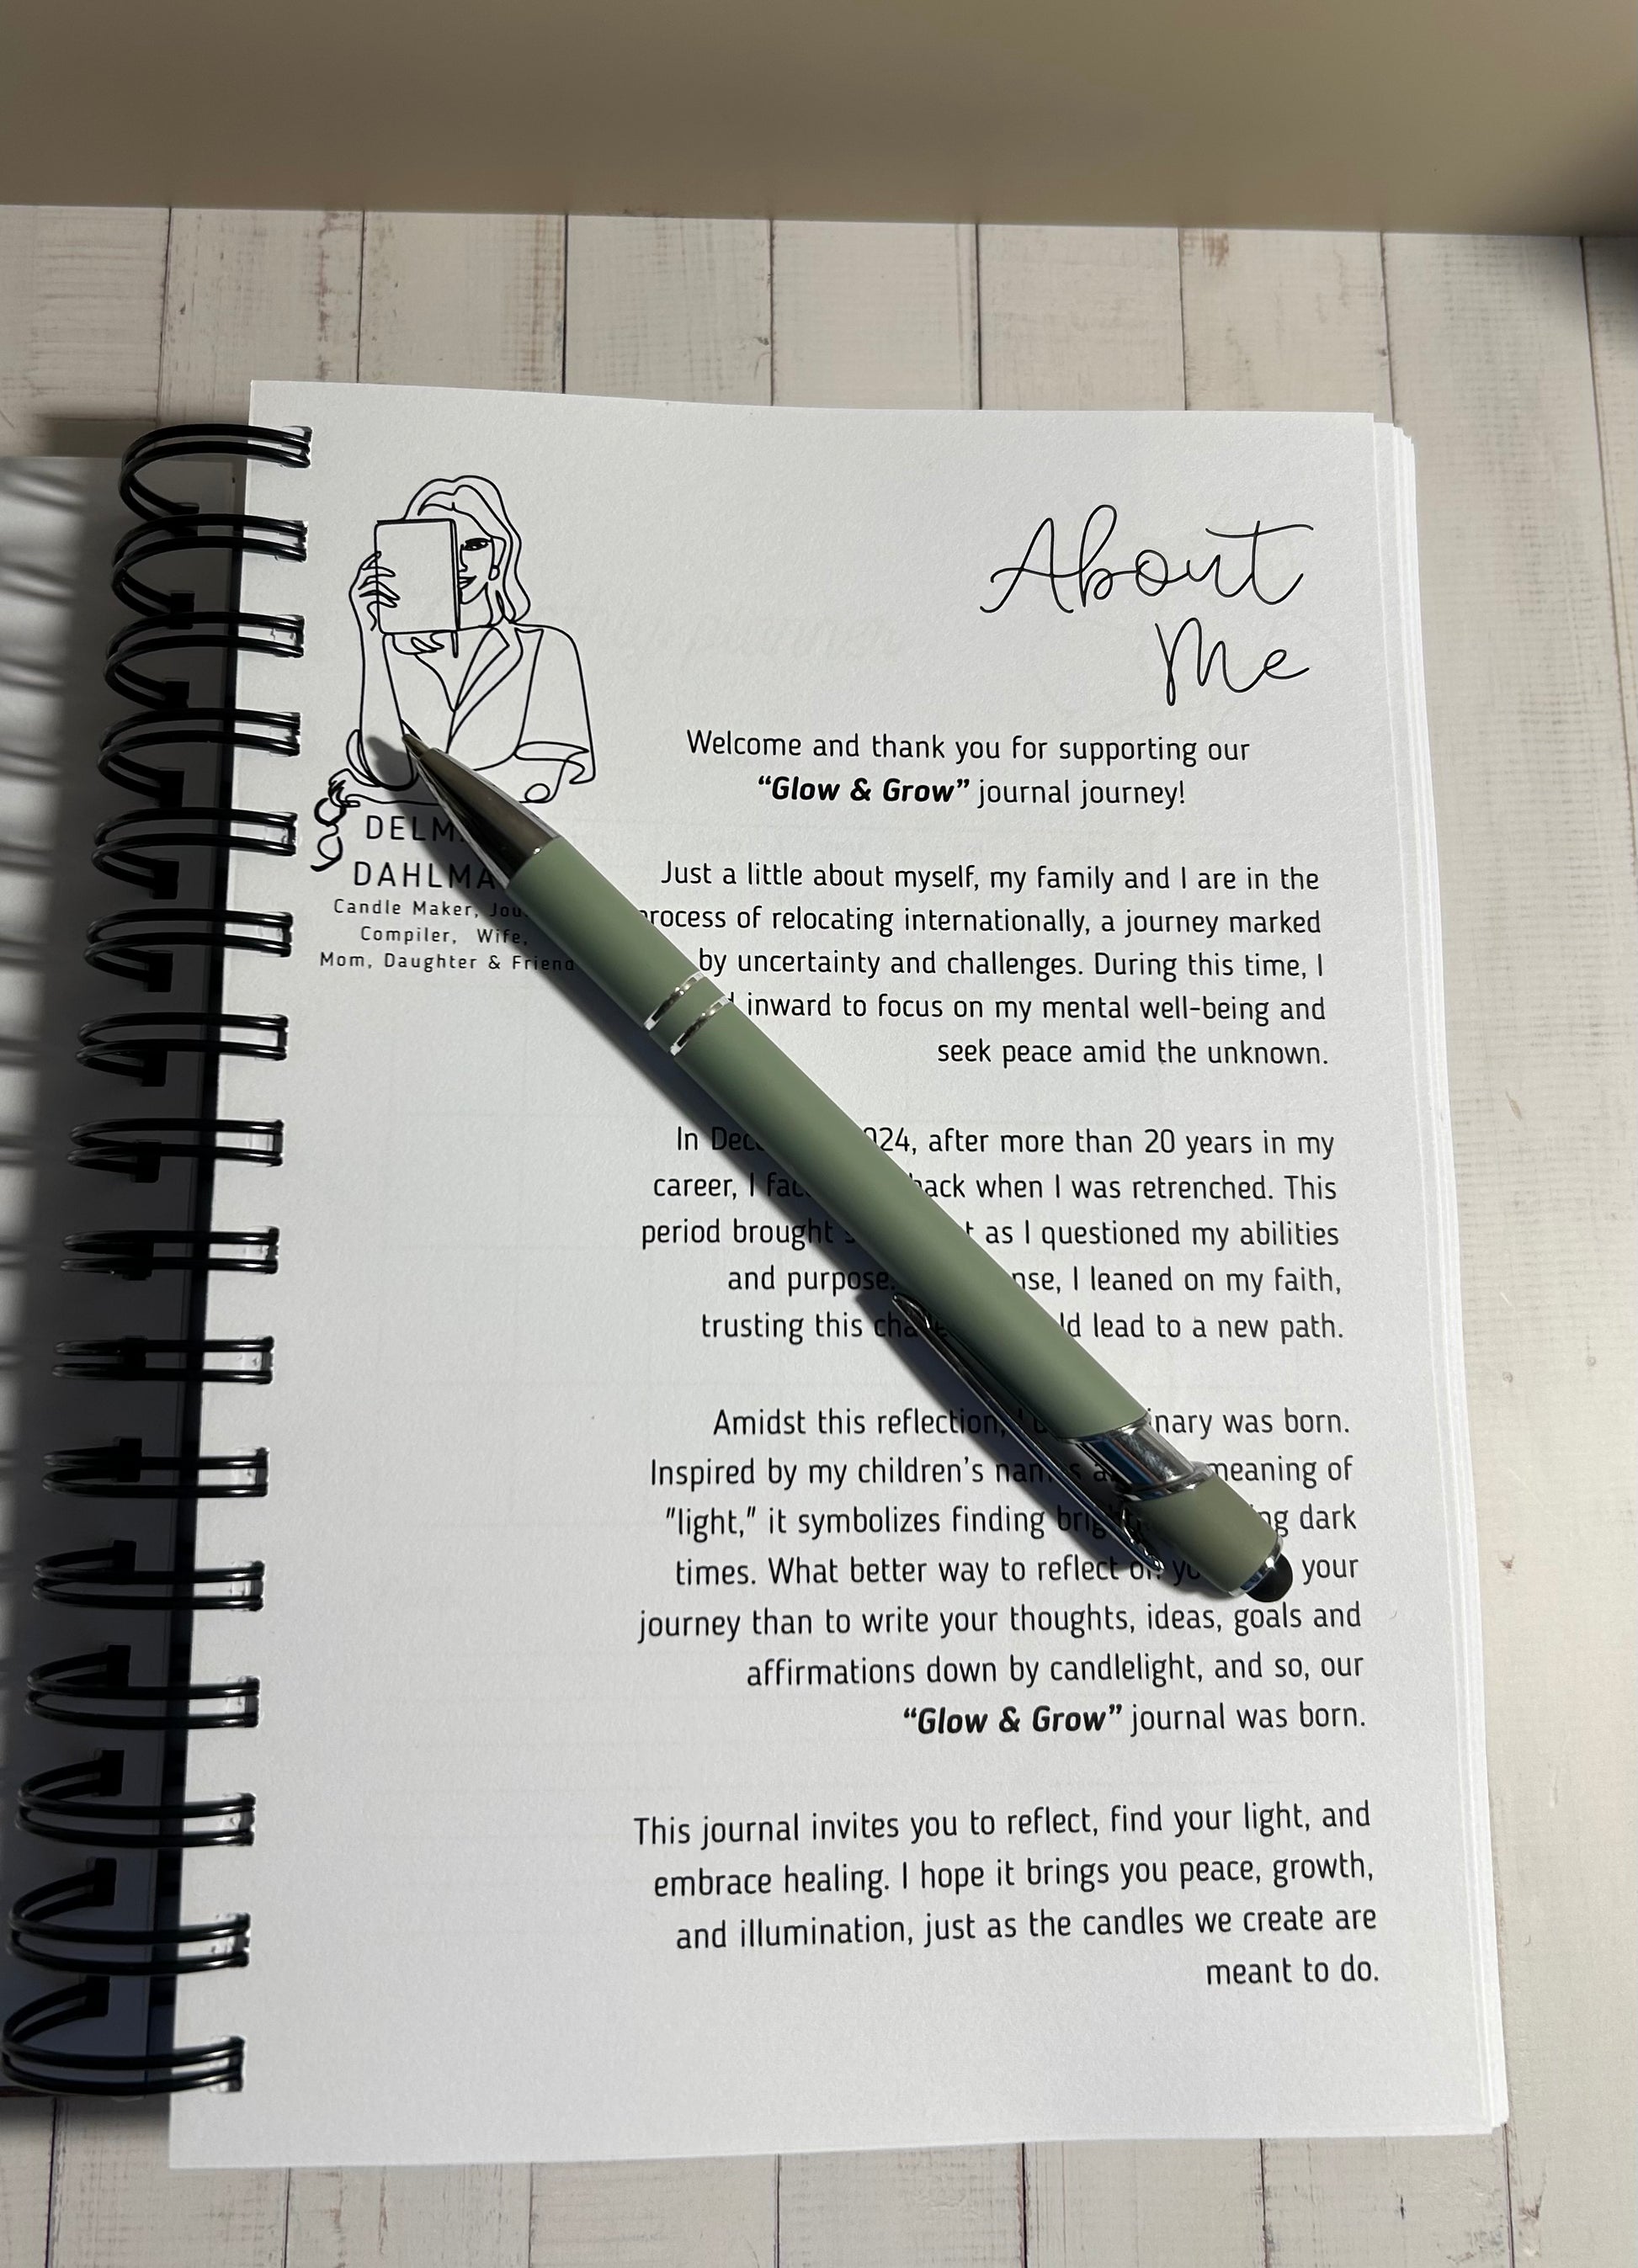 About
Me
DELM
DAHLMA
Candle Maker, Jou
Compiler, Wife,
Mom, Daughter & Friend
Welcome and thank you for supporting our
“Glow & Grow” journal journey!
Just a little about myself, my family and I are in the
rocess of relocating internationally, a journey marked
by uncertainty and challenges. During this time, I
inward to focus on my mental well-being and
seek peace amid the unknown.
In Dec 024, after more than 20 years in my
career, I fac back when I was retrenched. This
period brought as I questioned my abilities
and purpose. nse, I leaned on my faith,
trusting this cha ld lead to a new path.
Amidst this reflection, inary was born.
Inspired by my children’s names meaning of
"light," it symbolizes finding brig ng dark
times. What better way to reflect on your
journey than to write your thoughts, ideas, goals and
affirmations down by candlelight, and so, our
“Glow & Grow” journal was born.
This journal invites you to reflect, find your light, and
embrace healing. I hope it brings you peace, growth,
and illumination, just as the candles we create are
meant to do.